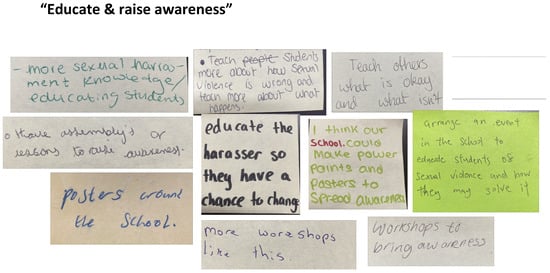 “Educate & raise awareness”
- more sexual harras-
ment knowledge/
educating students
• Teach people students
more about how sexual
violence is wrong and
teach more about what
happens.
Teach others
what is okay
and what isn't
• Have assembly's or
reasons to raise awareness.
educate the
harasser so
they have a
chance to change
I think our
School could
Make power
Points and
Posters to
Spread awareness
arrange an event
in the School to
educate students of
Sexual violence and how
they may solve it
posters around
the School.
more workshops
like this.
Workshops to
bring awareness.